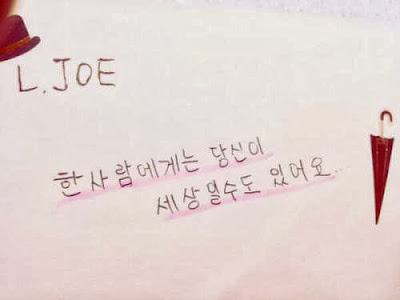 L.JOE
한사람에게는 당신이
세상일수도 있어요...